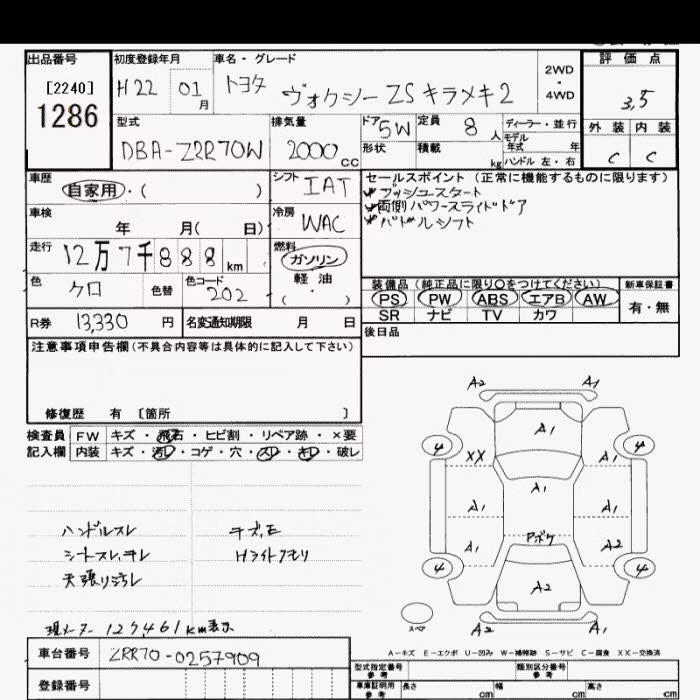 出品番号 初度登録年月 車名・グレード 評価点
[2240] H22 01月 トヨタ ヴォクシーZSキラメキ2 2WD・4WD 3,5
1286
型式 排気量 ドア 5W 定員 8人 ディーラー・並行 外装 内装
DBA-ZRR70W 2000cc 形状 積載 kg モデル年式 年 C C
ハンドル 左・右
車歴 シフト IAT セールスポイント(正常に機能するものに限ります)
自家用・( ) プッシュスタート
車検 冷房 WAC 両側パワースライドドア
年 月( 日) パドルシフト
走行 12万7千888km 燃料 ガソリン
色 クロ 色替 色コード 202 軽油
・( )
装備品(純正品に限り〇をつけてください) 新車保証書
PS PW ABS エアB AW 有・無
SR ナビ TV カワ
R券 13,330円 名変通知期限 月 日 後日品
注意事項申告欄(不具合内容等は具体的に記入して下さい)
修復歴 有 〔箇所 〕
検査員 FW キズ・飛石・ヒビ割・リペア跡・×要
記入欄 内装 キズ・汚レ・コゲ・穴・スレ・キレ・破レ
A2 A1
A1
4 XX A1 4
A1
A1 A1
Pボケ
A1 A2
4 A2 4
スペア A2 A1
ハンドルスレ
シートスレ、ヨレ Hライトクモリ
天張り汚レ
現メーター 127461km表示
A-キズ E-エクボ U-凹み W-補修跡 S-サビ C-腐食 XX-交換済
車台番号 ZRR70-0257909
登録番号
型式指定番号 参考 類別区分番号 参考
車庫証明用 参考 長さ cm 幅 cm 高さ cm